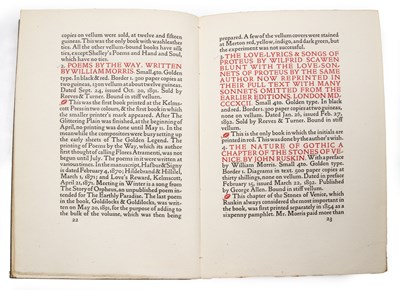 copies on vellum were sold, at twelve and fifteen
guineas. This was the only book with washleather
ties. All the other vellum-bound books have silk ties,
except Shelley's Poems and Hand and Soul, which
have no ties.
2. POEMS BY THE WAY. WRITTEN
BY WILLIAM MORRIS. Small 4to. Golden
type. In black & red. Border 1. 300 paper copies at
two guineas, 13 on vellum at about twelve guineas.
Dated Sept. 24, issued Oct. 20, 1891. Sold by
Reeves & Turner. Bound in stiff vellum.
This was the first book printed at the Kelmscott
Press in two colours, & the first book in which
the smaller printer's mark appeared. After The
Glittering Plain was finished, at the beginning of
April, no printing was done until May 11. In the
meanwhile the compositors were busy setting up
the early sheets of The Golden Legend. The
printing of Poems by the Way, which its author
first thought of calling Flores Atramenti, was not
begun until July. The poems in it were written at
various times. In the manuscript, Hafbur & Signy
is dated February 4, 1870; Hildebrand & Hillilel,
March 1, 1871; and Love's Reward, Kelmscott,
April 21, 1871. Meeting in Winter is a song from
The Story of Orpheus, an unpublished poem intended
for The Earthly Paradise. The last poem
in the book, Goldilocks & Goldilocks, was written
on May 20, 1891, for the purpose of adding to
the bulk of the volume, which was then being
22
prepared. A few of the vellum covers were stained
at Merton red, yellow, indigo, and dark green, but
the experiment was not successful.
3. THE LOVE-LYRICS & SONGS OF
PROTEUS BY WILFRID SCAWEN
BLUNT WITH THE LOVE-SONNETS
OF PROTEUS BY THE SAME
AUTHOR NOW REPRINTED IN
THEIR FULL TEXT WITH MANY
SONNETS OMITTED FROM THE
EARLIER EDITIONS. LONDON
MDCCCXCII. Small 4to. Golden type. In black
and red. Border 1. 300 paper copies at two guineas,
none on vellum. Dated Jan. 26, issued Feb. 27,
1892. Sold by Reeves & Turner. Bound in stiff
vellum.
This is the only book in which the initials are
printed in red. This was done by the author's wish.
4. THE NATURE OF GOTHIC A
CHAPTER OF THE STONES OF VENICE.
BY JOHN RUSKIN. With a preface
by William Morris. Small 4to. Golden type.
Border 1. Diagrams in text. 500 paper copies at
thirty shillings, none on vellum. Dated in preface
February 15, issued March 22, 1892. Published
by George Allen. Bound in stiff vellum.
This chapter of the Stones of Venice, which
Ruskin always considered the most important in
the book, was first printed separately in 1854 as a
sixpenny pamphlet. Mr. Morris paid more than
23